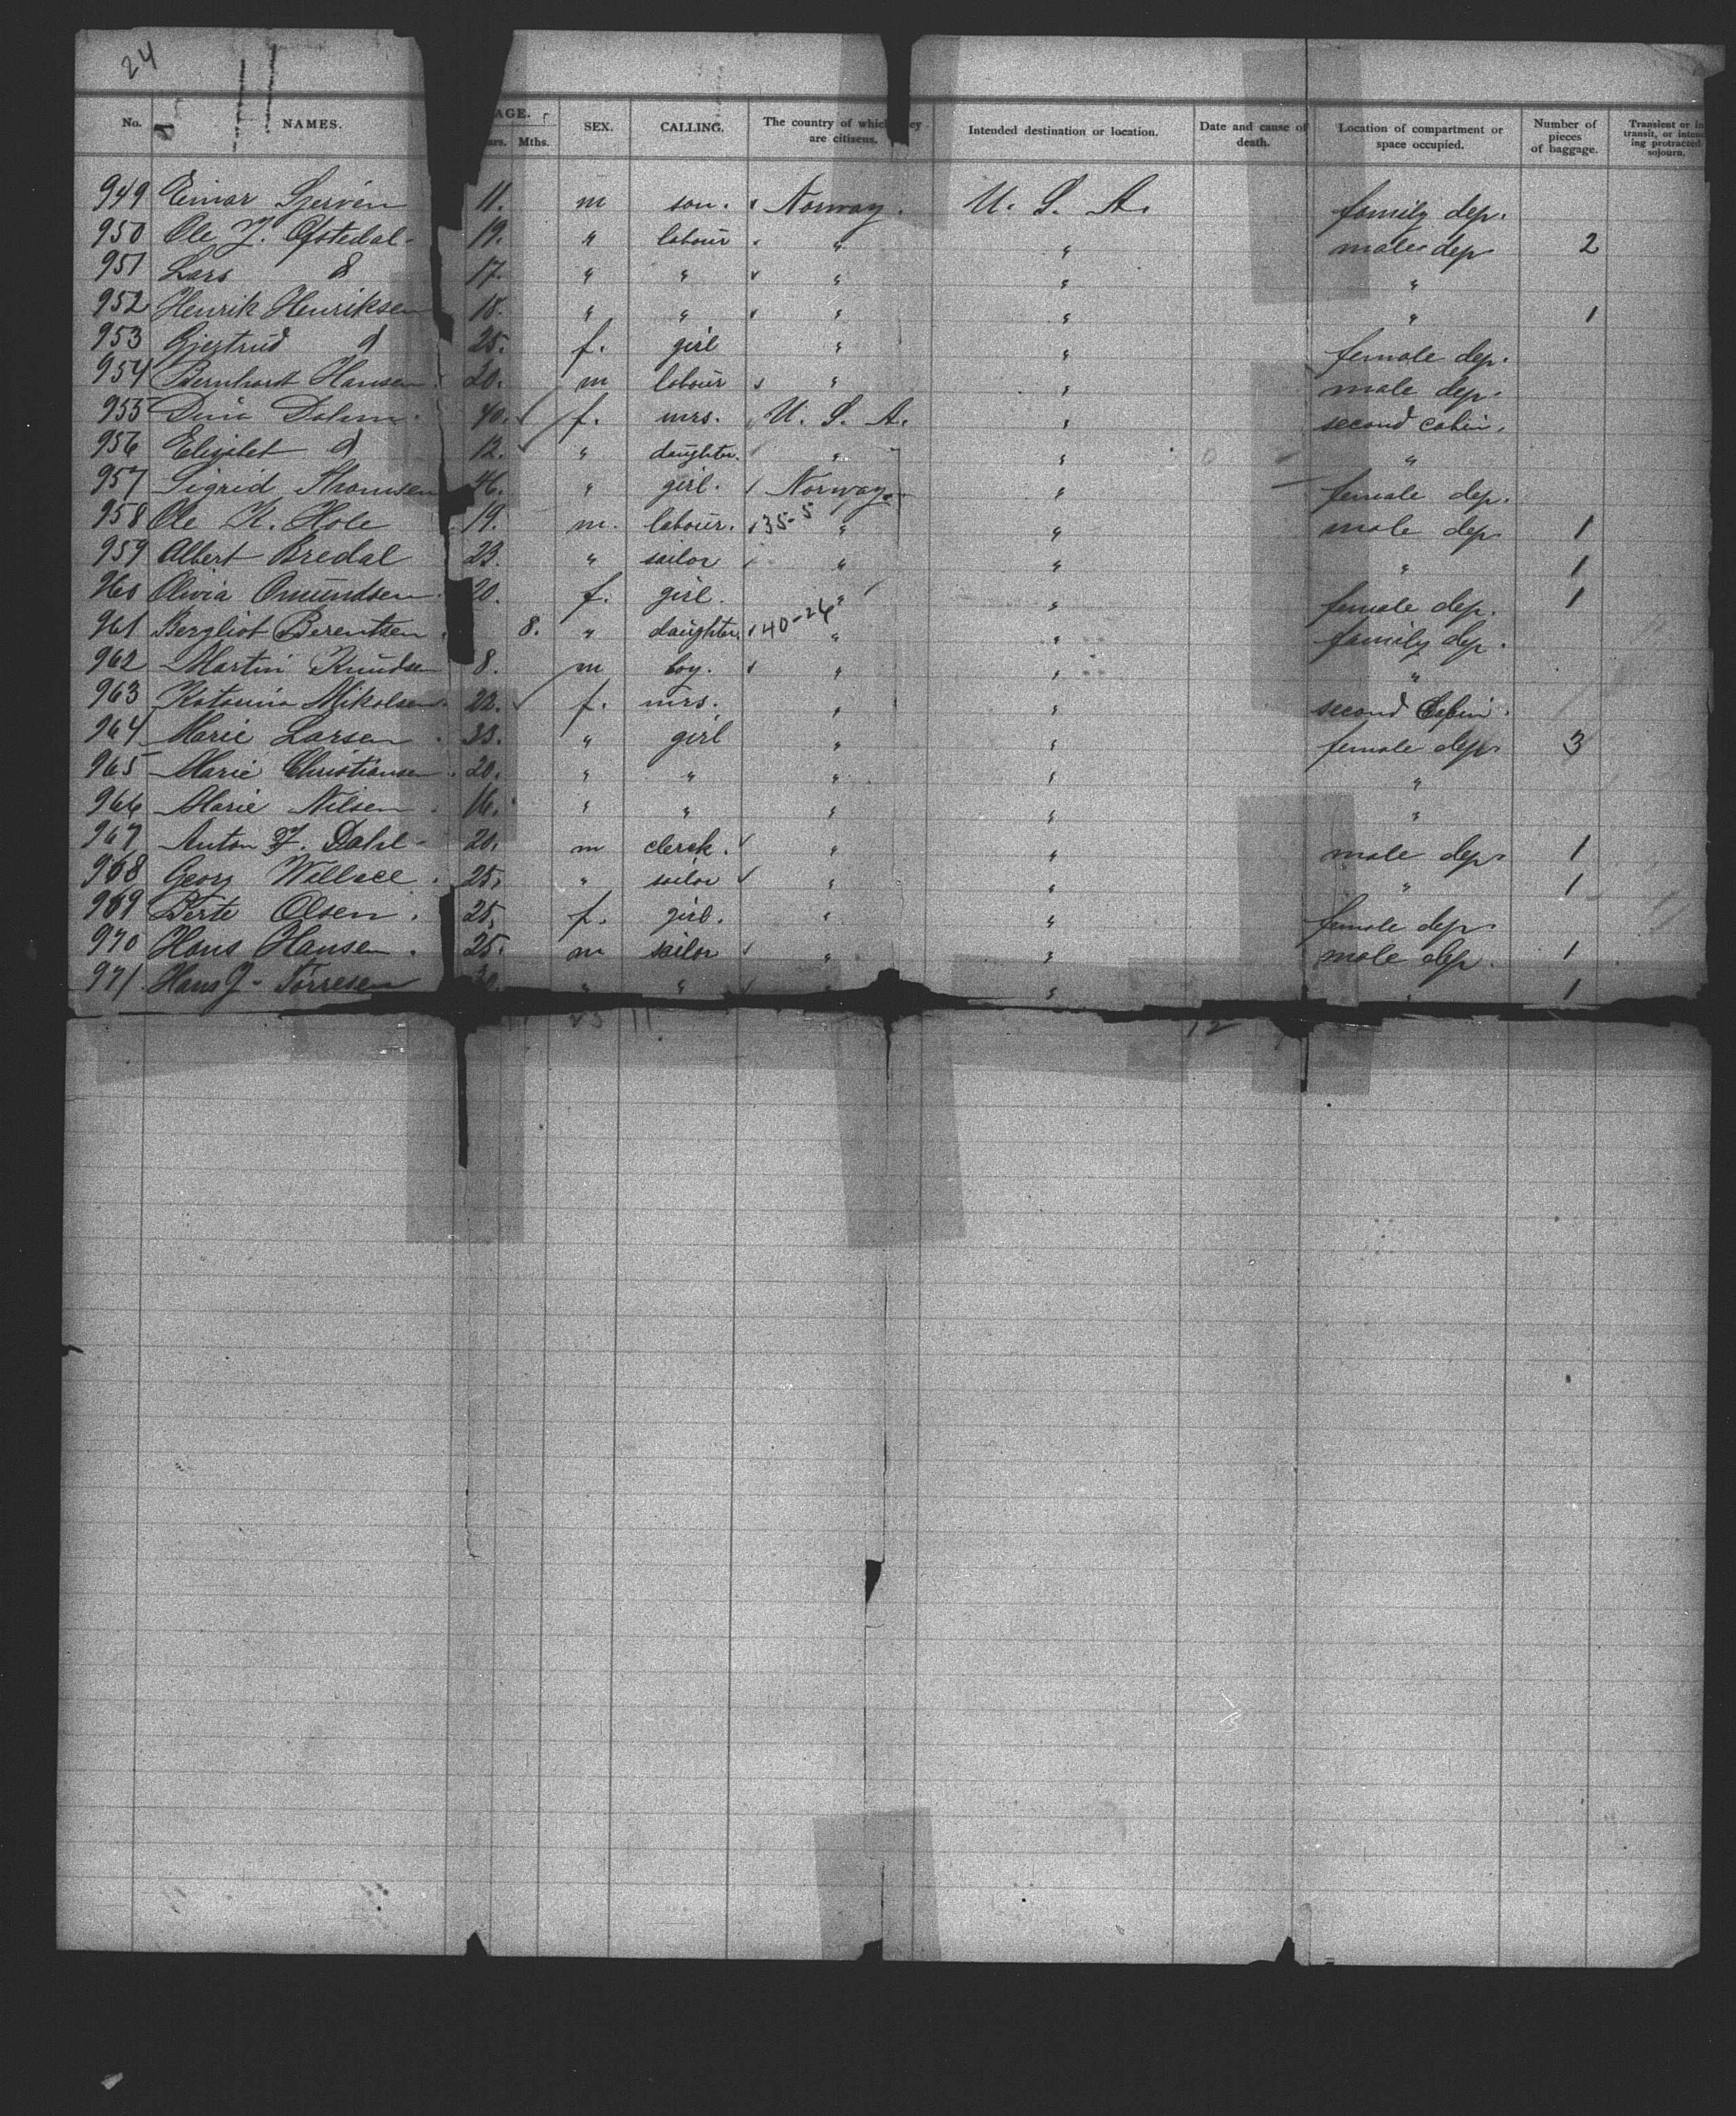 24
No. NAMES. AGE. SEX. CALLING. The country of which they are citizens. Intended destination or location. Date and cause of death. Location of compartment or space occupied. Number of pieces of baggage. Transient or in transit, or intending protracted sojourn.
Mths.
949 Einar 11. m son. Norway. U. S. A. family dep.
950 Ole 19. " labour " " male dep 2
951 Lars 17. " " " " "
952 Henrik Henriksen 18. " " " " " 1
953 Gjertrud d 25. f. girl " " female dep.
954 Bernhardt Hansen 20. m labour " " male dep.
955 40. f. mrs. U. S. A. " second cabin.
956 d 12. " daughter. " " "
957 Sigrid Thomsen 46. " girl. Norway. " female dep.
958 Ole K. Hole 19. m. labour. 135-5 " " male dep 1
959 Albert Bredal 23. " sailor " " " 1
960 Olivia Omundsen 20. f. girl. " " female dep. 1
961 Bergliot Berentsen 8. " daughter. 140-26 " " family dep.
962 Martin Knudsen 8. m boy. " " "
963 Mikolsen f. mrs. " " second Cabin.
964 Marie Larsen 33. " girl " " female dep. 3
965 Marie Christiansen 20. " " " " "
966 Marie Nilsen 16. " " " " "
967 Anton F. Dahl 20. m clerk. " " male dep. 1
968 Georg Wallace 25. " sailor " " " 1
969 Berte Olsen. 25. f. girl. " " female dep.
970 Hans Hansen. 25. m sailor " " male dep. 1
971 Hans J. Torresen 30. " " " " " 1